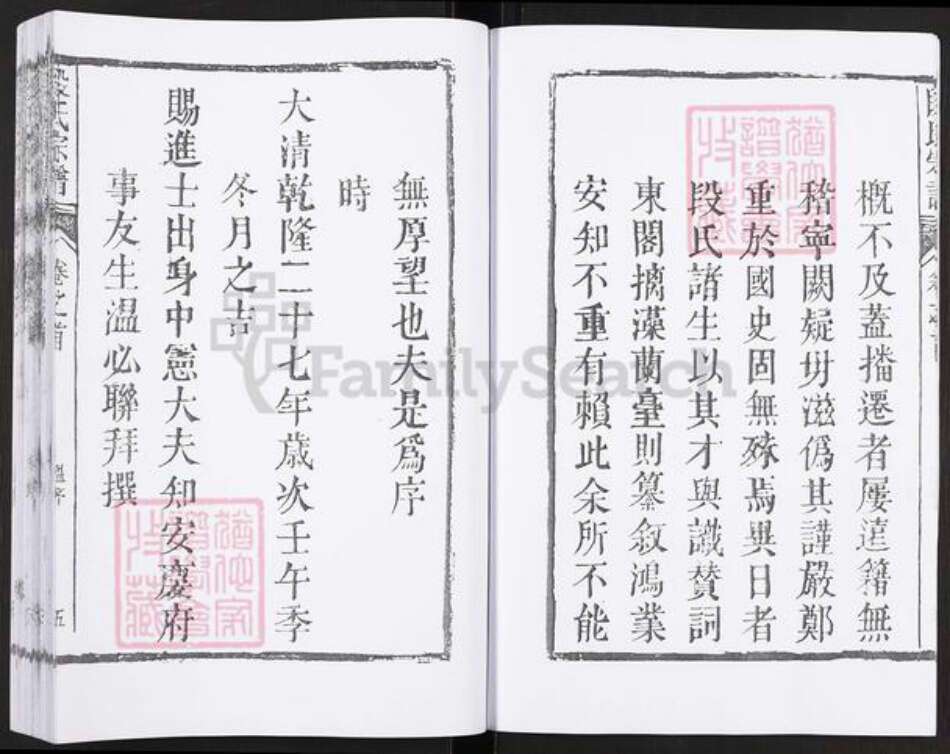 概不及蓋播遷者屢遠籍無
稽寧闕疑毋滋僞其謹嚴鄭
重於國史固無殊焉異日者
段氏諸生以其才與識賛詞
東閣摛藻蘭臺則纂叙鴻業
安知不重有賴此余所不能
無厚望也夫是爲序
時
大清乾隆二十七年歲次壬午季
冬月之吉
賜進士出身中憲大夫知安慶府
事友生温必聯拜撰
段氏宗譜
卷之首
溫序
五
FamilySearch